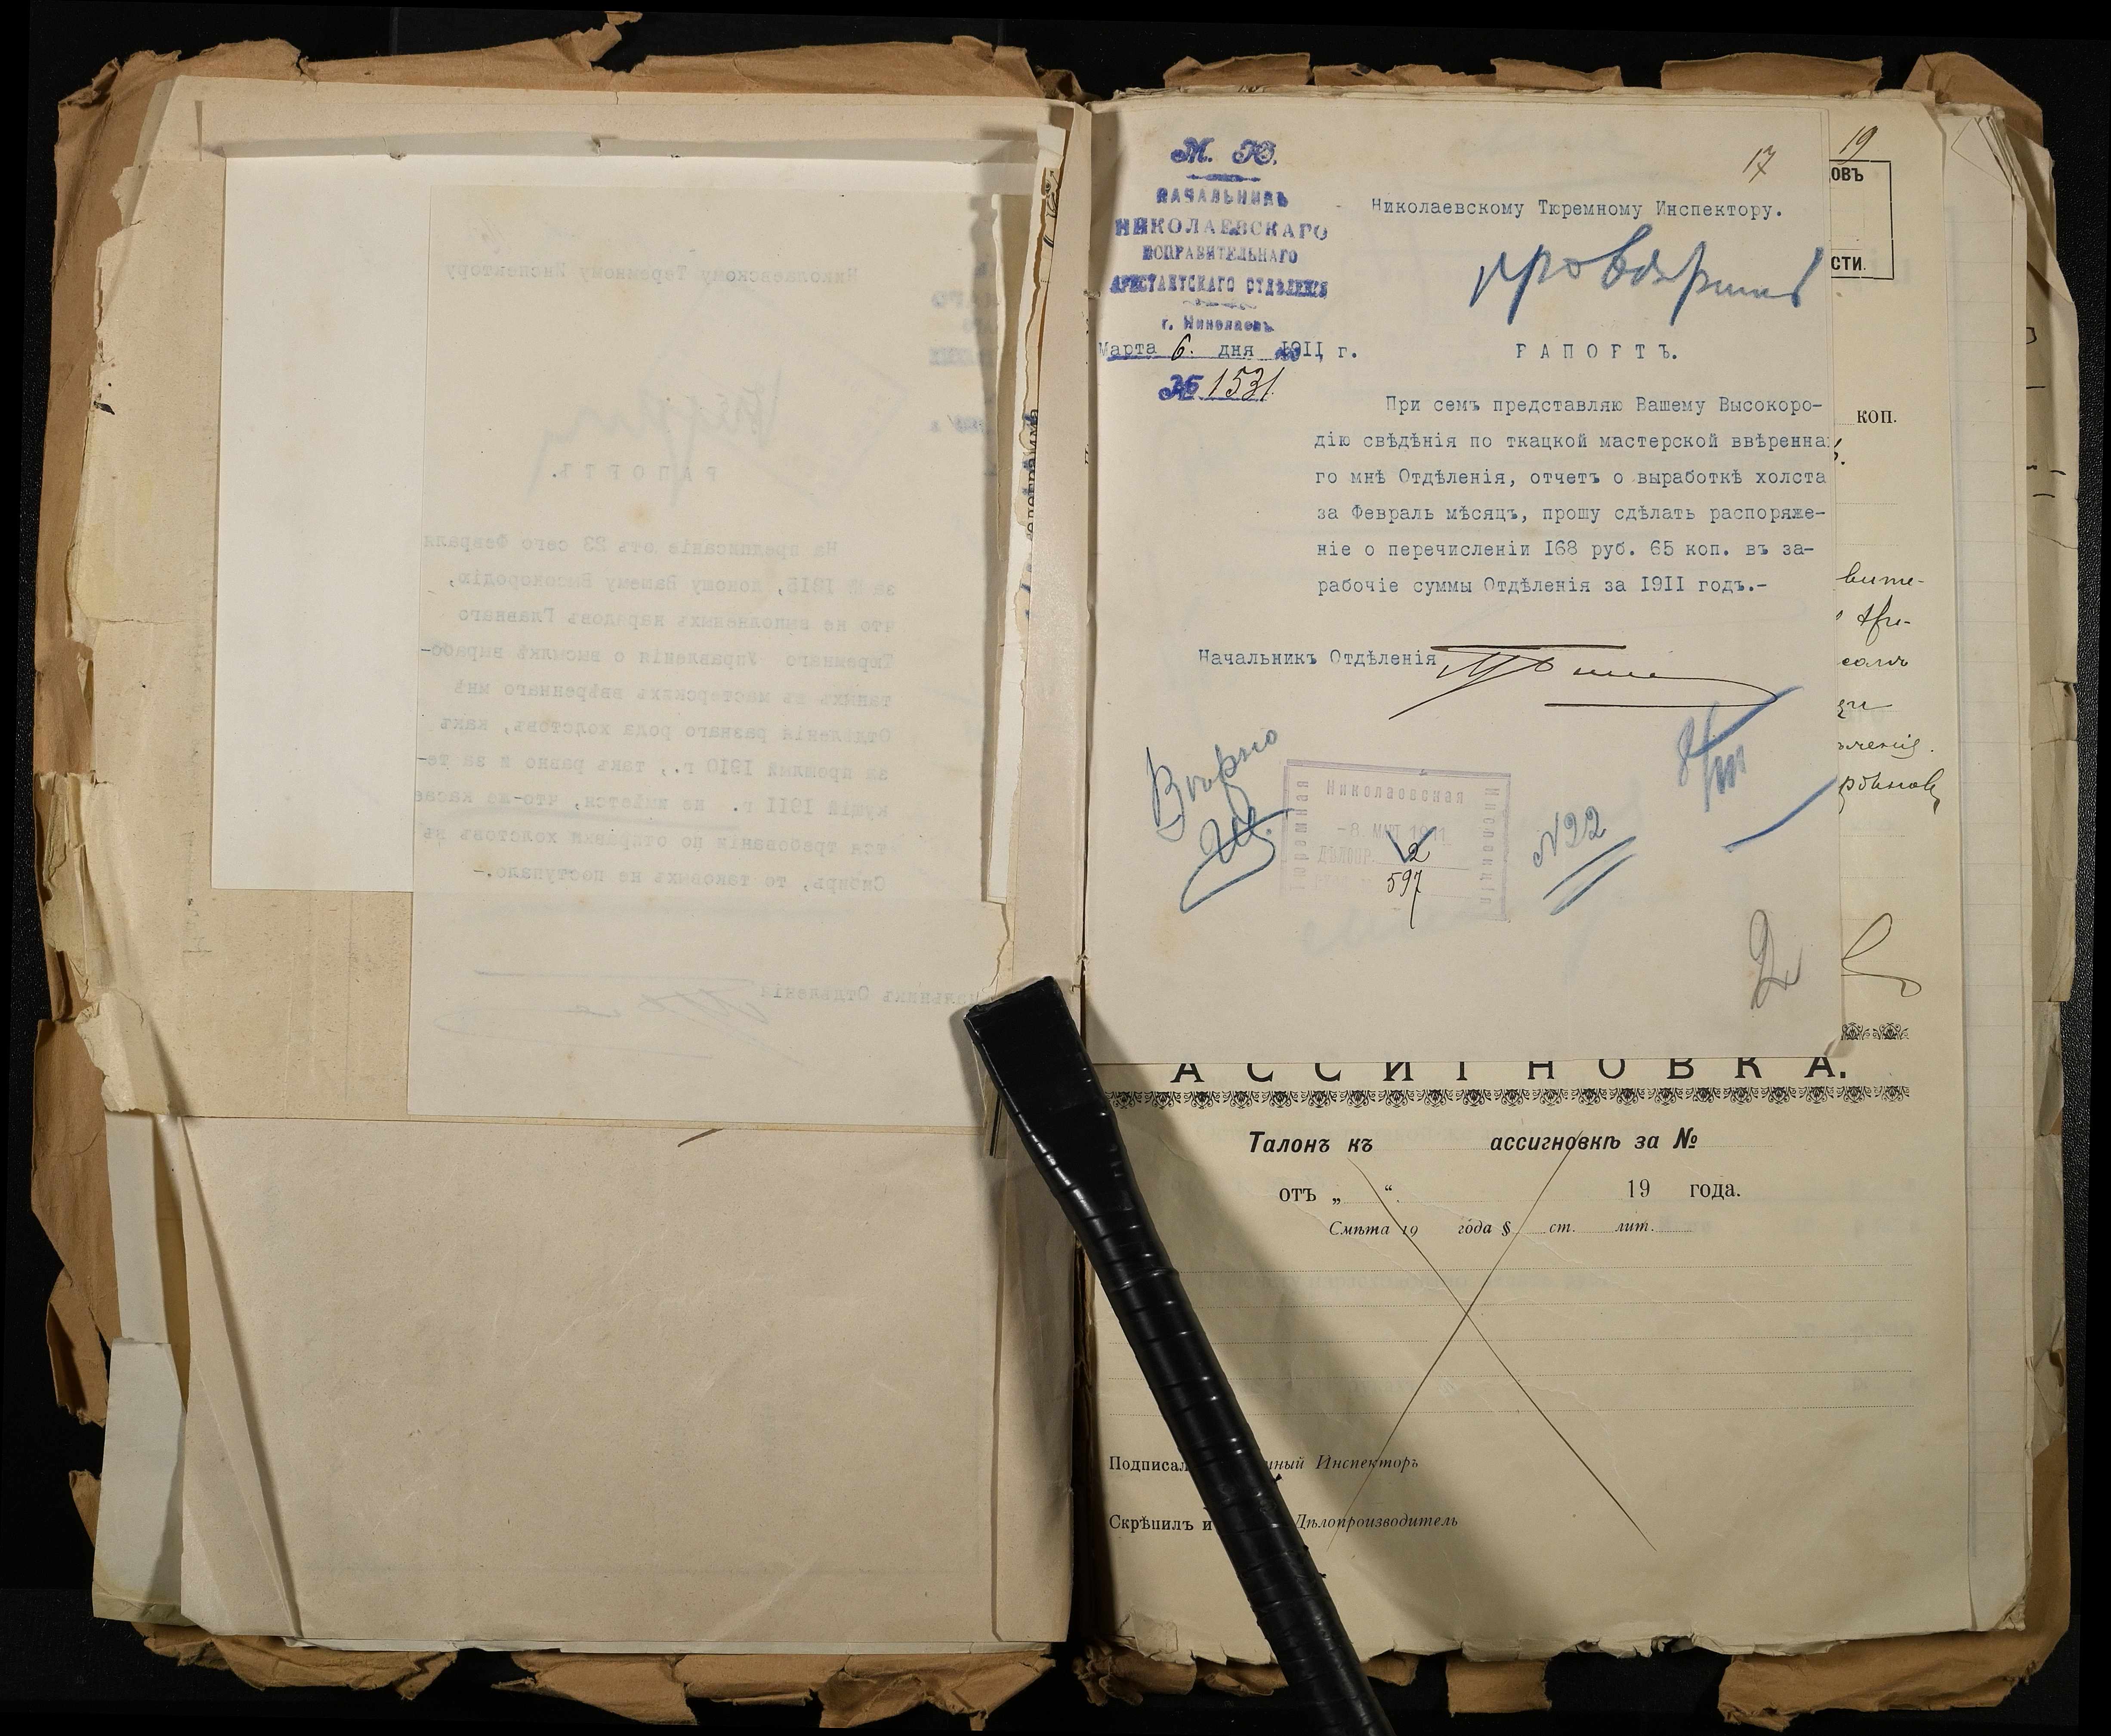 Николаевскому Тюремному Инспектору
РАПОРТЪ.
На предписаніе отъ 23 сего Февраля
за № 1315, доношу Вашему Высокородію,
что не выполненыхъ нарядовъ Главнаго
Тюремнаго Управленія о высылкѣ вырабо-
танныхъ въ мастерскихъ ввѣреннаго мнѣ
Отдѣленія разнаго рода холстовъ, какъ
за прошлый 1910 г., такъ равно и за те-
кущій 1911 г. не имѣется, что-же касае
тся требованія по отправки холстовъ въ
Сибирь, то таковыхъ не поступало.-
Начальникъ Отдѣленія
М. Ю.
НАЧАЛЬНИКЪ
НИКОЛАЕВСКАГО
ИСПРАВИТЕЛЬНАГО
АРЕСТАНТСКАГО ОТДѢЛЕНІЯ
г. Николаевъ
Марта 6. дня 1911 г.
№ 1531.
17
Николаевскому Тюремному Инспектору.
РАПОРТЪ.
При семъ представляю Вашему Высокоро-
дію свѣдѣнія по ткацкой мастерской ввѣренна
го мнѣ Отдѣленія, отчетъ о выработкѣ холста
за Февраль мѣсяцъ, прошу сдѣлать распоряже-
ніе о перечисленіи 168 руб. 65 коп. въ за-
рабочіе суммы Отдѣленія за 1911 годъ.-
Начальникъ Отдѣленія
8/III
Николаевская
Тюремная
Инспекція
-8. МАР 1911
2
597
№22
2
19
ОВЪ
СТИ.
коп.
АССИГНОВКА.
Талонъ къ ассигновкѣ за №
отъ „ “ 19 года.
Смѣта 19 года § ст. лит.
Подписал ный Инспекторъ
Скрѣпилъ и Дѣлопроизводитель